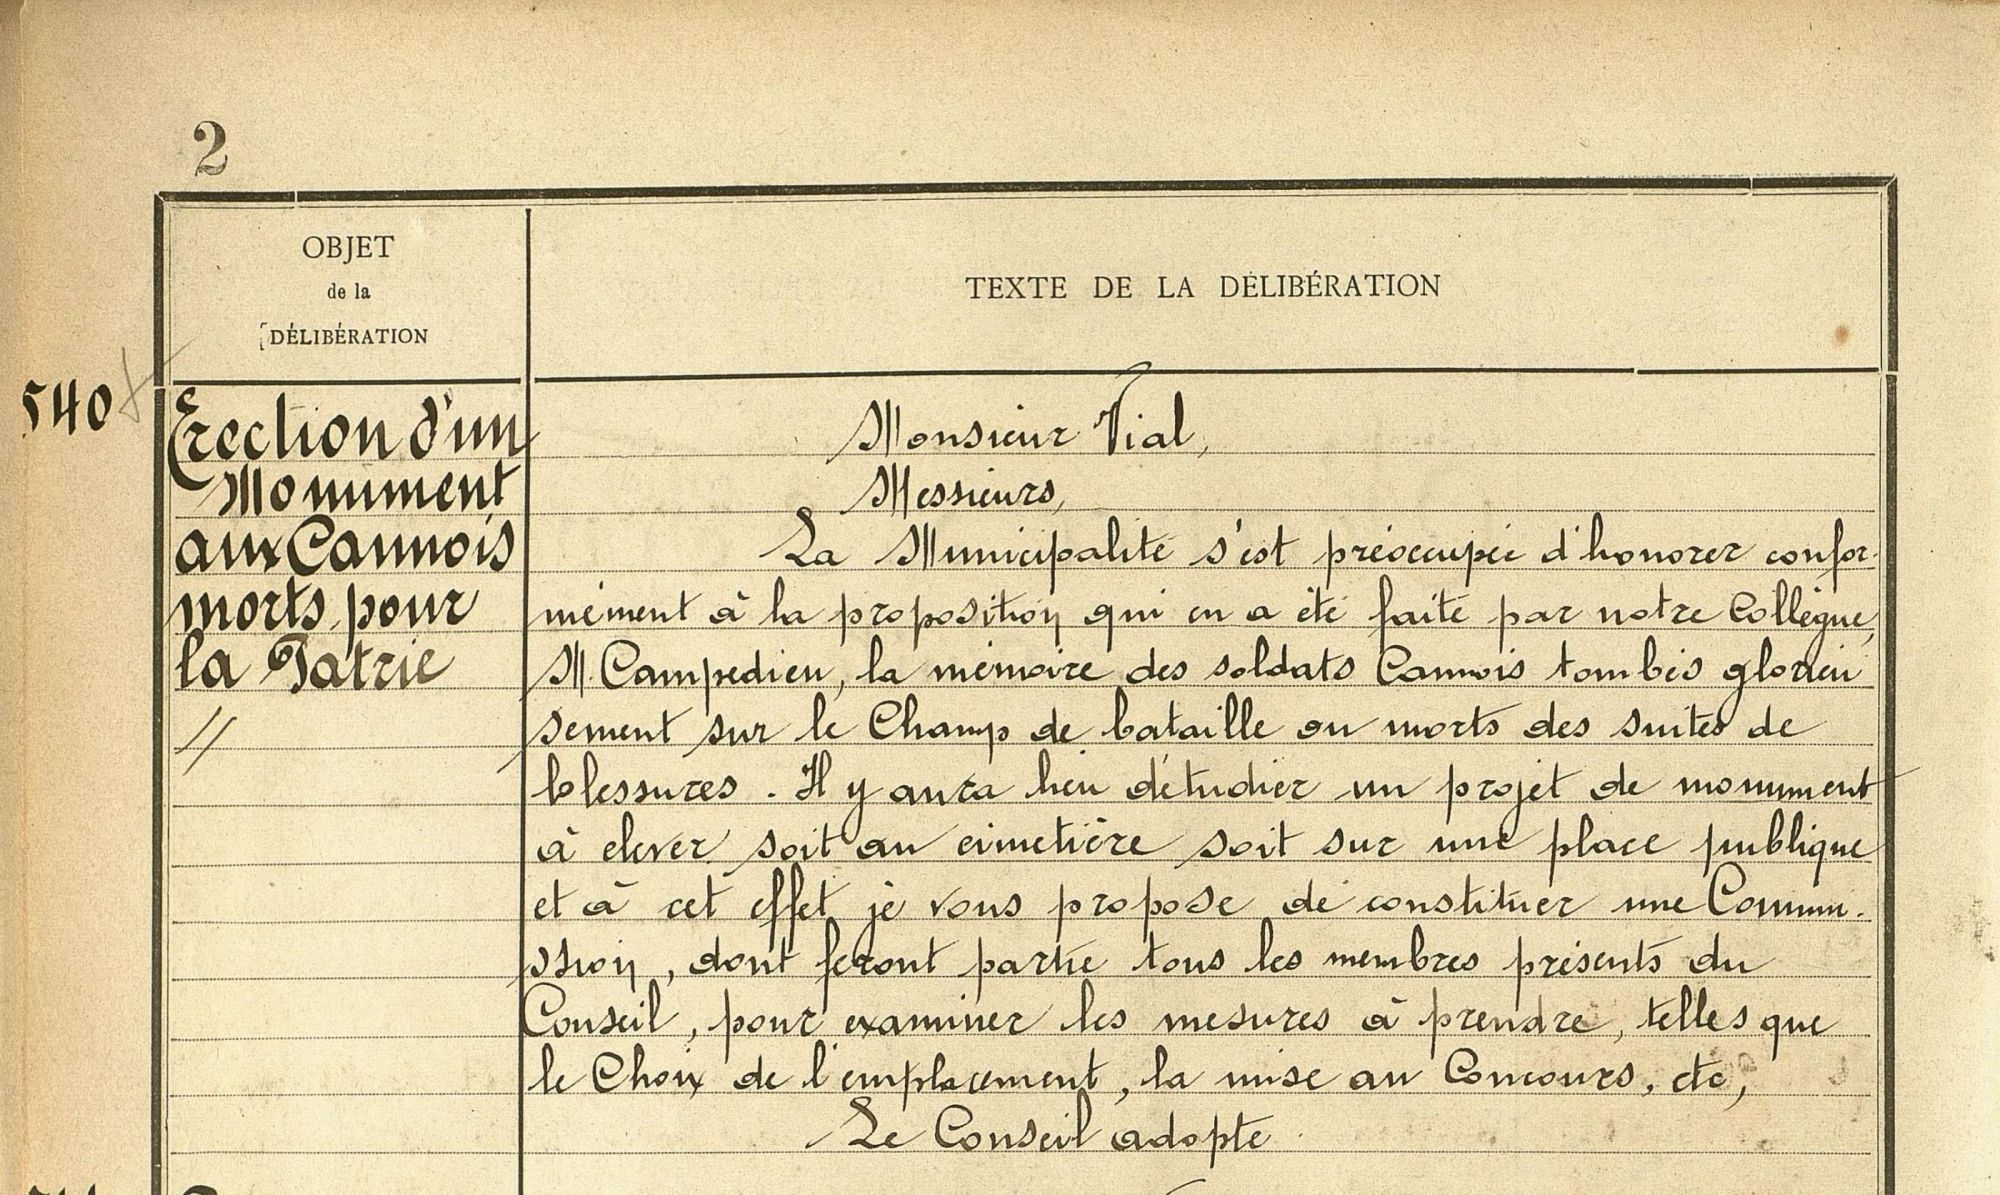 2
OBJET
de la
DÉLIBÉRATION
TEXTE DE LA DÉLIBÉRATION
540
Erection d'un
Monument
aux Cannois
morts pour
la Patrie
//
Monsieur Vial,
Messieurs,
La Municipalité s'est préoccupée d'honorer confor-
mément à la proposition qui en a été faite par notre Collègue,
M. Campedieu, la mémoire des soldats Cannois tombés glorieu
sement sur le Champ de bataille ou morts des suites de
blessures. Il y aura lieu d'étudier un projet de monument
à élever soit au cimetière soit sur une place publique
et à cet effet je vous propose de constituer une Commi-
ssion, dont feront partie tous les membres présents du
Conseil, pour examiner les mesures à prendre, telles que
le Choix de l'emplacement, la mise au Concours, etc,
Le Conseil adopte